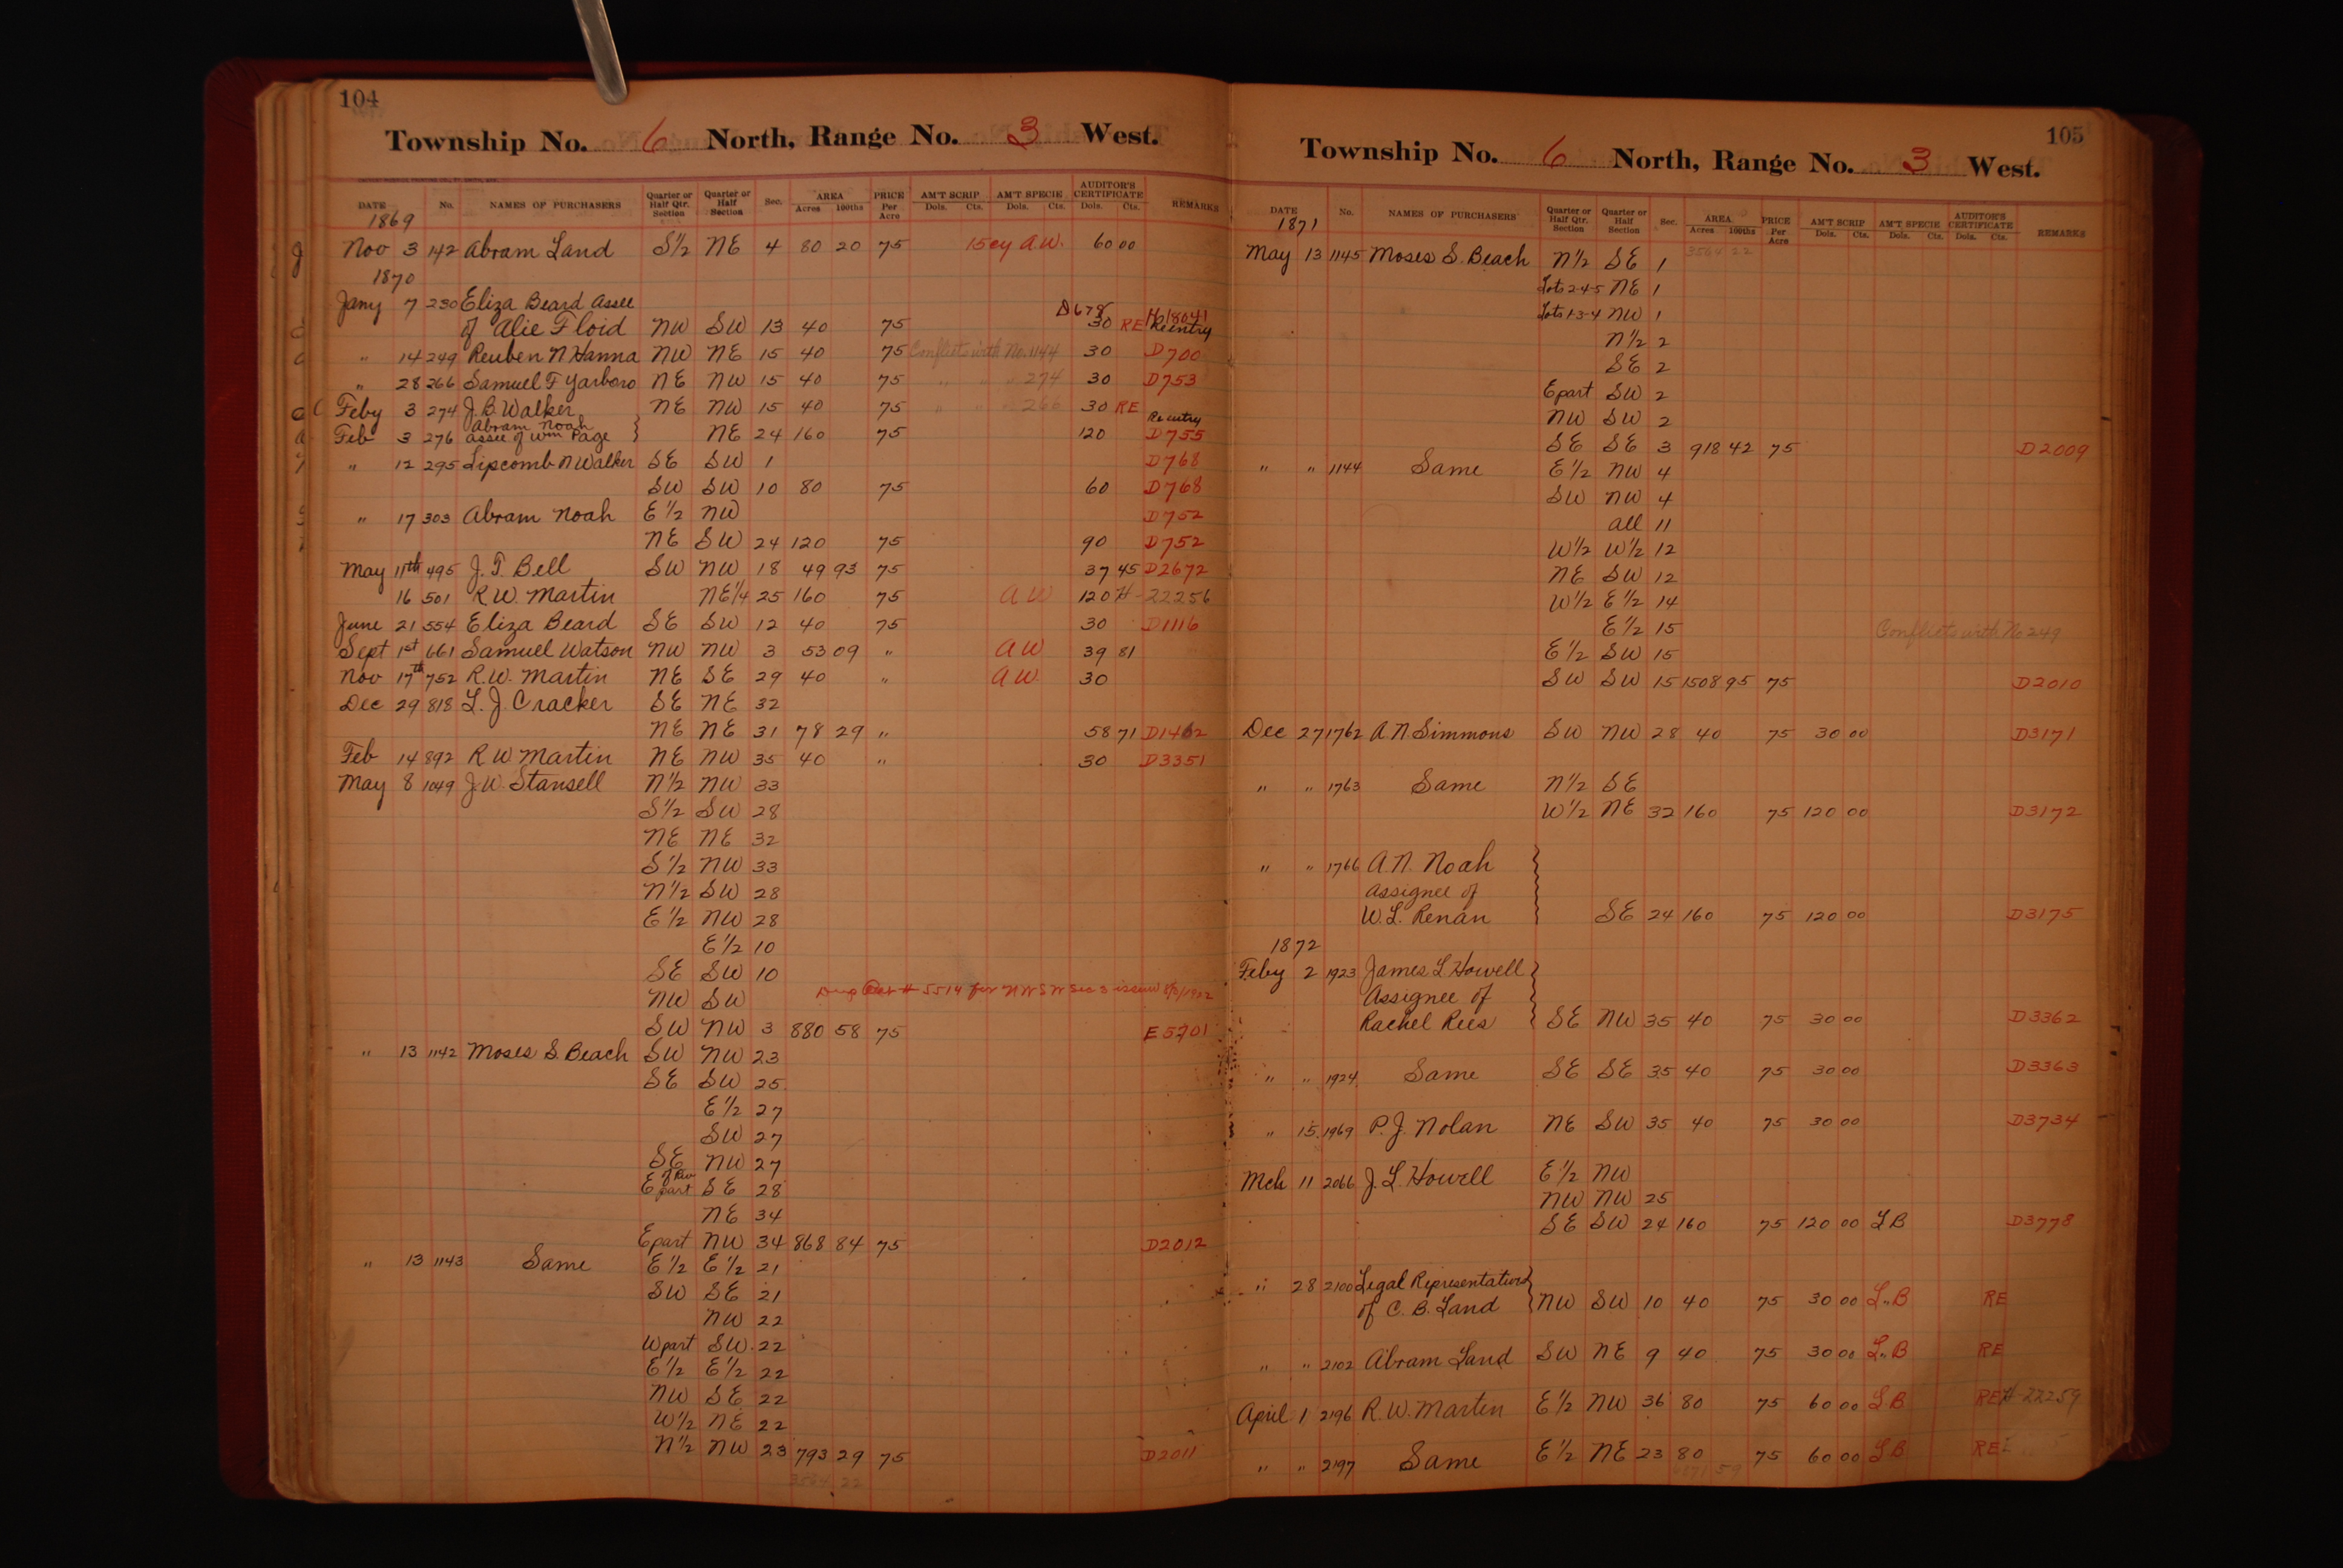 104
Township No. 6 North, Range No. 3 West.
DATE No. NAMES OF PURCHASERS Quarter or Half Qtr. Section Quarter or Half Section Sec. AREA Acres 100ths PRICE Per Acre AM'T SCRIP Dols. Cts. AM'T SPECIE Dols. Cts. AUDITOR'S CERTIFICATE Dols. Cts. REMARKS
1869
Nov 3 142 Abram Land S½ NE 4 80 20 75 15cy A.W. 60 00
1870
Jany 7 230 Eliza Beard Assee D678 H18041
of Alie Floid NW SW 13 40 75 30 RE Reentry
" 14 249 Reuben N Hanna NW NE 15 40 75 Conflicts with No. 1144 30 D700
" 28 266 Samuel F Yarboro NE NW 15 40 75 " " " 274 30 D753
Feby 3 274 J.B. Walker NE NW 15 40 75 " " " 266 30 RE Reentry
Abram Noah
Feb 3 276 assee of Wm Page } NE 24 160 75 120 D755
" 12 295 Lipscomb N Walker SE SW 1 D768
SW SW 10 80 75 60 D768
" 17 303 Abram Noah E½ NW D752
NE SW 24 120 75 90 D752
May 11th 495 J. T. Bell SW NW 18 49 93 75 37 45 D2672
16 501 R.W. Martin NE¼ 25 160 75 A W 120 H-22256
June 21 554 Eliza Beard SE SW 12 40 75 30 D1116
Sept 1st 661 Samuel Watson NW NW 3 53 09 " A W 39 81
Nov 17th 752 R.W. Martin NE SE 29 40 " A W. 30
Dec 29 818 L. J. Cracker SE NE 32
NE NE 31 78 29 " 58 71 D1462
Feb 14 892 R W Martin NE NW 35 40 " 30 D3351
May 8 1049 J.W. Stansell N½ NW 33
S½ SW 28
NE NE 32
S½ NW 33
N½ SW 28
E½ NW 28
E½ 10
SE SW 10
NW SW Dup Cert # 5514 for NW SW Sec 3 issued
SW NW 3 880 58 75 E5701
" 13 1142 Moses S. Beach SW NW 23
SE SW 25
E½ 27
SW 27
SE NW 27
E part SE 28
NE 34
E part NW 34 868 84 75 D2012
" 13 1143 Same E½ E½ 21
SW SE 21
NW 22
W part SW 22
E½ E½ 22
NW SE 22
W½ NE 22
N½ NW 23 793 29 75 D2011
3564 22
105
Township No. 6 North, Range No. 3 West.
DATE No. NAMES OF PURCHASERS Quarter or Half Qtr. Section Quarter or Half Section Sec. AREA Acres 100ths PRICE Per Acre AM'T SCRIP Dols. Cts. AM'T SPECIE Dols. Cts. AUDITOR'S CERTIFICATE Dols. Cts. REMARKS
1871
3564 22
May 13 1145 Moses S. Beach N½ SE 1
Lots 2-4-5 NE 1
Lots 1-3-4 NW 1
N½ 2
SE 2
E part SW 2
NW SW 2
SE SE 3 918 42 75 D2009
" " 1144 Same E½ NW 4
SW NW 4
all 11
W½ W½ 12
NE SW 12
W½ E½ 14
E½ 15 Conflicts with No 249
E½ SW 15
SW SW 15 1508 95 75 D2010
Dec 27 1762 A.N. Simmons SW NW 28 40 75 30 00 D3171
" " 1763 Same N½ SE
W½ NE 32 160 75 120 00 D3172
" " 1766 A.N. Noah
Assignee of
W.L. Renan SE 24 160 75 120 00 D3175
1872
Feby 2 1923 James L Howell
Assignee of
Rachel Rees SE NW 35 40 75 30 00 D3362
" " 1924 Same SE SE 35 40 75 30 00 D3363
" 15 1969 P.J. Nolan NE SW 35 40 75 30 00 D3734
Mch 11 2066 J.L. Howell E½ NW
NW NW 25
SE SW 24 160 75 120 00 L B D3778
" 28 2100 Legal Representatives
of C. B. Land NW SW 10 40 75 30 00 L.B RE
" " 2102 Abram Land SW NE 9 40 75 30 00 L.B RE
April 1 2196 R.W. Martin E½ NW 36 80 75 60 00 L B RE H-22259
" " 2197 Same E½ NE 23 80 75 60 00 L B RE